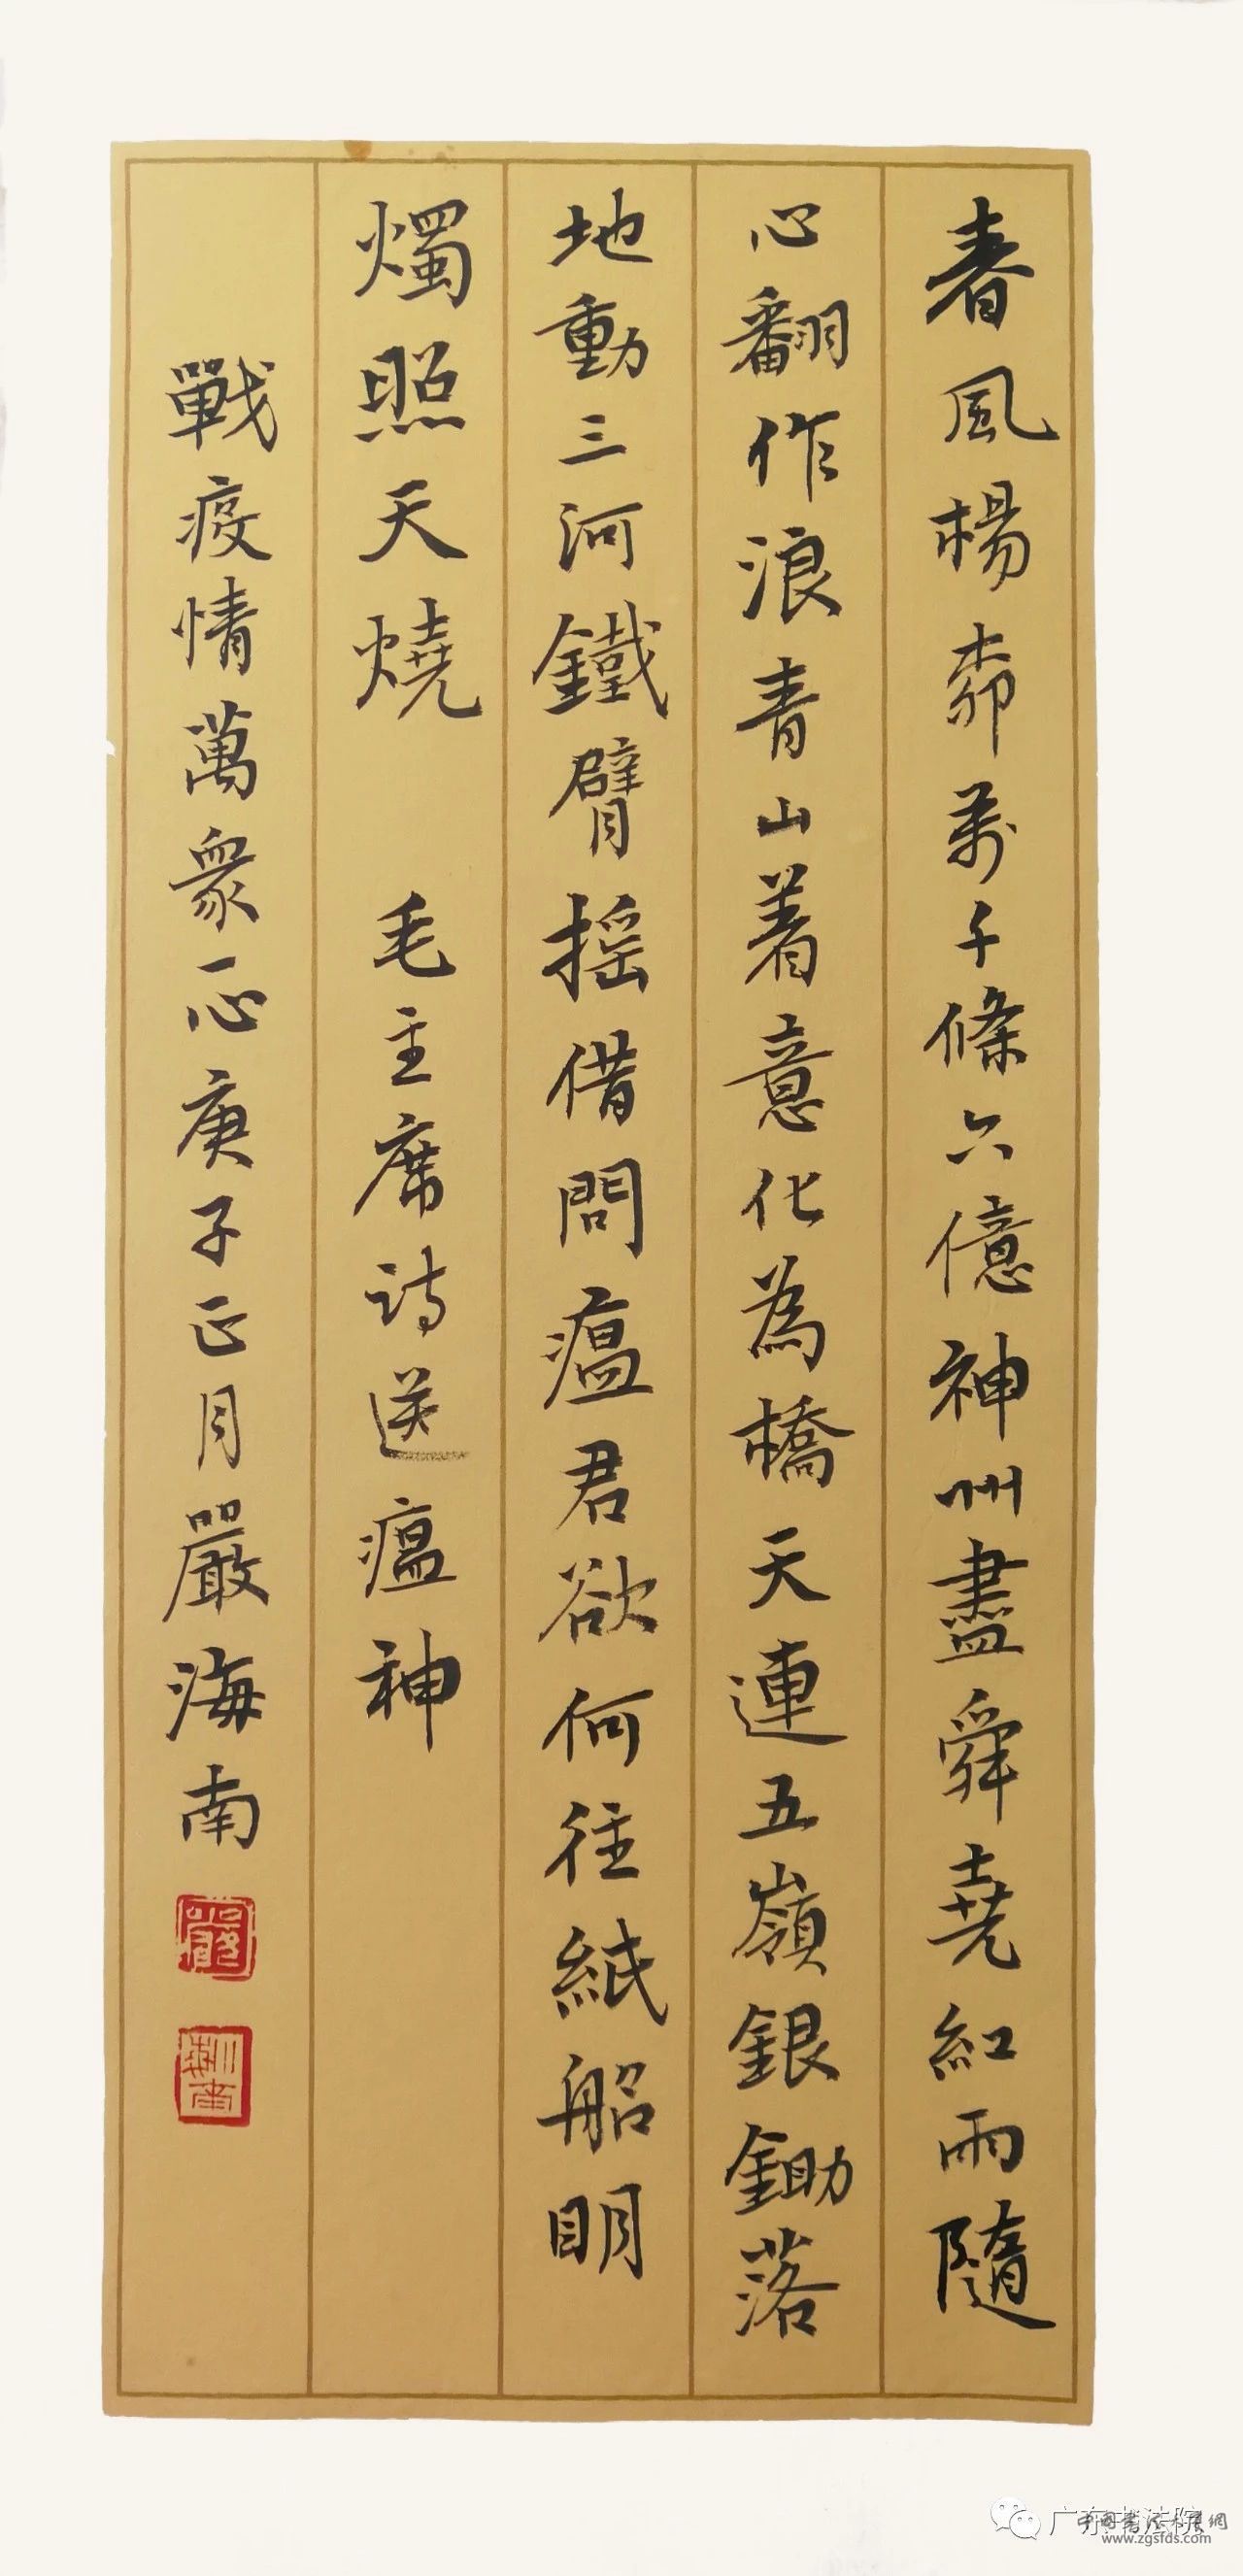 春風楊柳萬千條六億神州盡舜堯紅雨隨
心翻作浪青山着意化為橋天連五嶺銀鋤落
地動三河鐵臂摇借問瘟君欲何往紙船明
燭照天燒 毛主席詩送瘟神
戰疫情萬衆一心庚子正月嚴海南
广东书法院
www.zgsfds.com